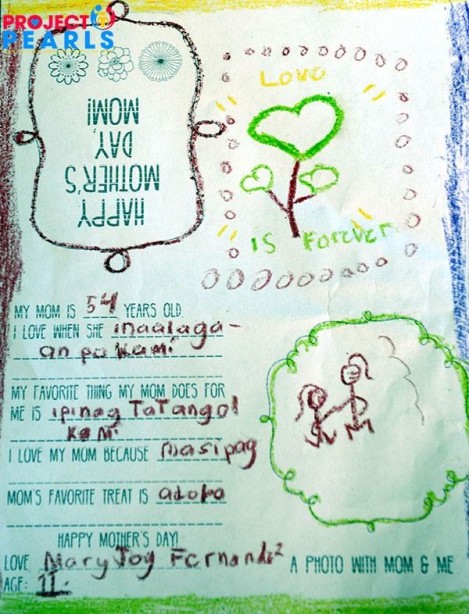 PROJECT
PEARLS
HAPPY
MOTHER'S
DAY,
MOM!
LOVE
IS Forever
MY MOM IS 54 YEARS OLD.
I LOVE WHEN SHE inaalaga-
an pa kami
MY FAVORITE THING MY MOM DOES FOR
ME IS ipinag TaTangol
Kami
I LOVE MY MOM BECAUSE masipag
MOM'S FAVORITE TREAT IS adobo
HAPPY MOTHER'S DAY!
LOVE, Mary Joy Fernandez
AGE: 11.
A PHOTO WITH MOM & ME